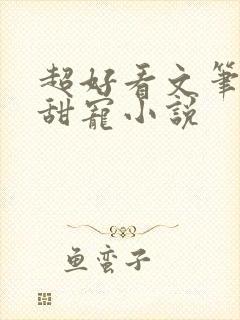 超好看文笔
甜寵小說
鱼蛮子